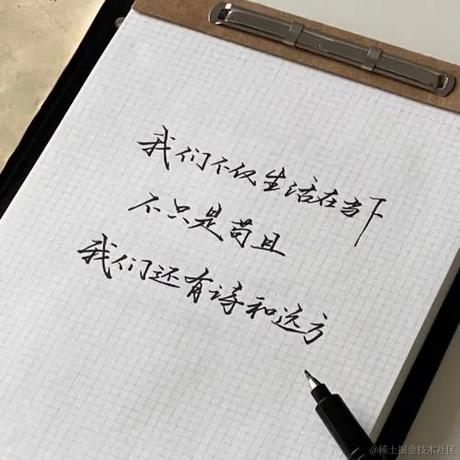 我们不仅生活在当下
不只是苟且
我们还有诗和远方
@稀土掘金技术社区